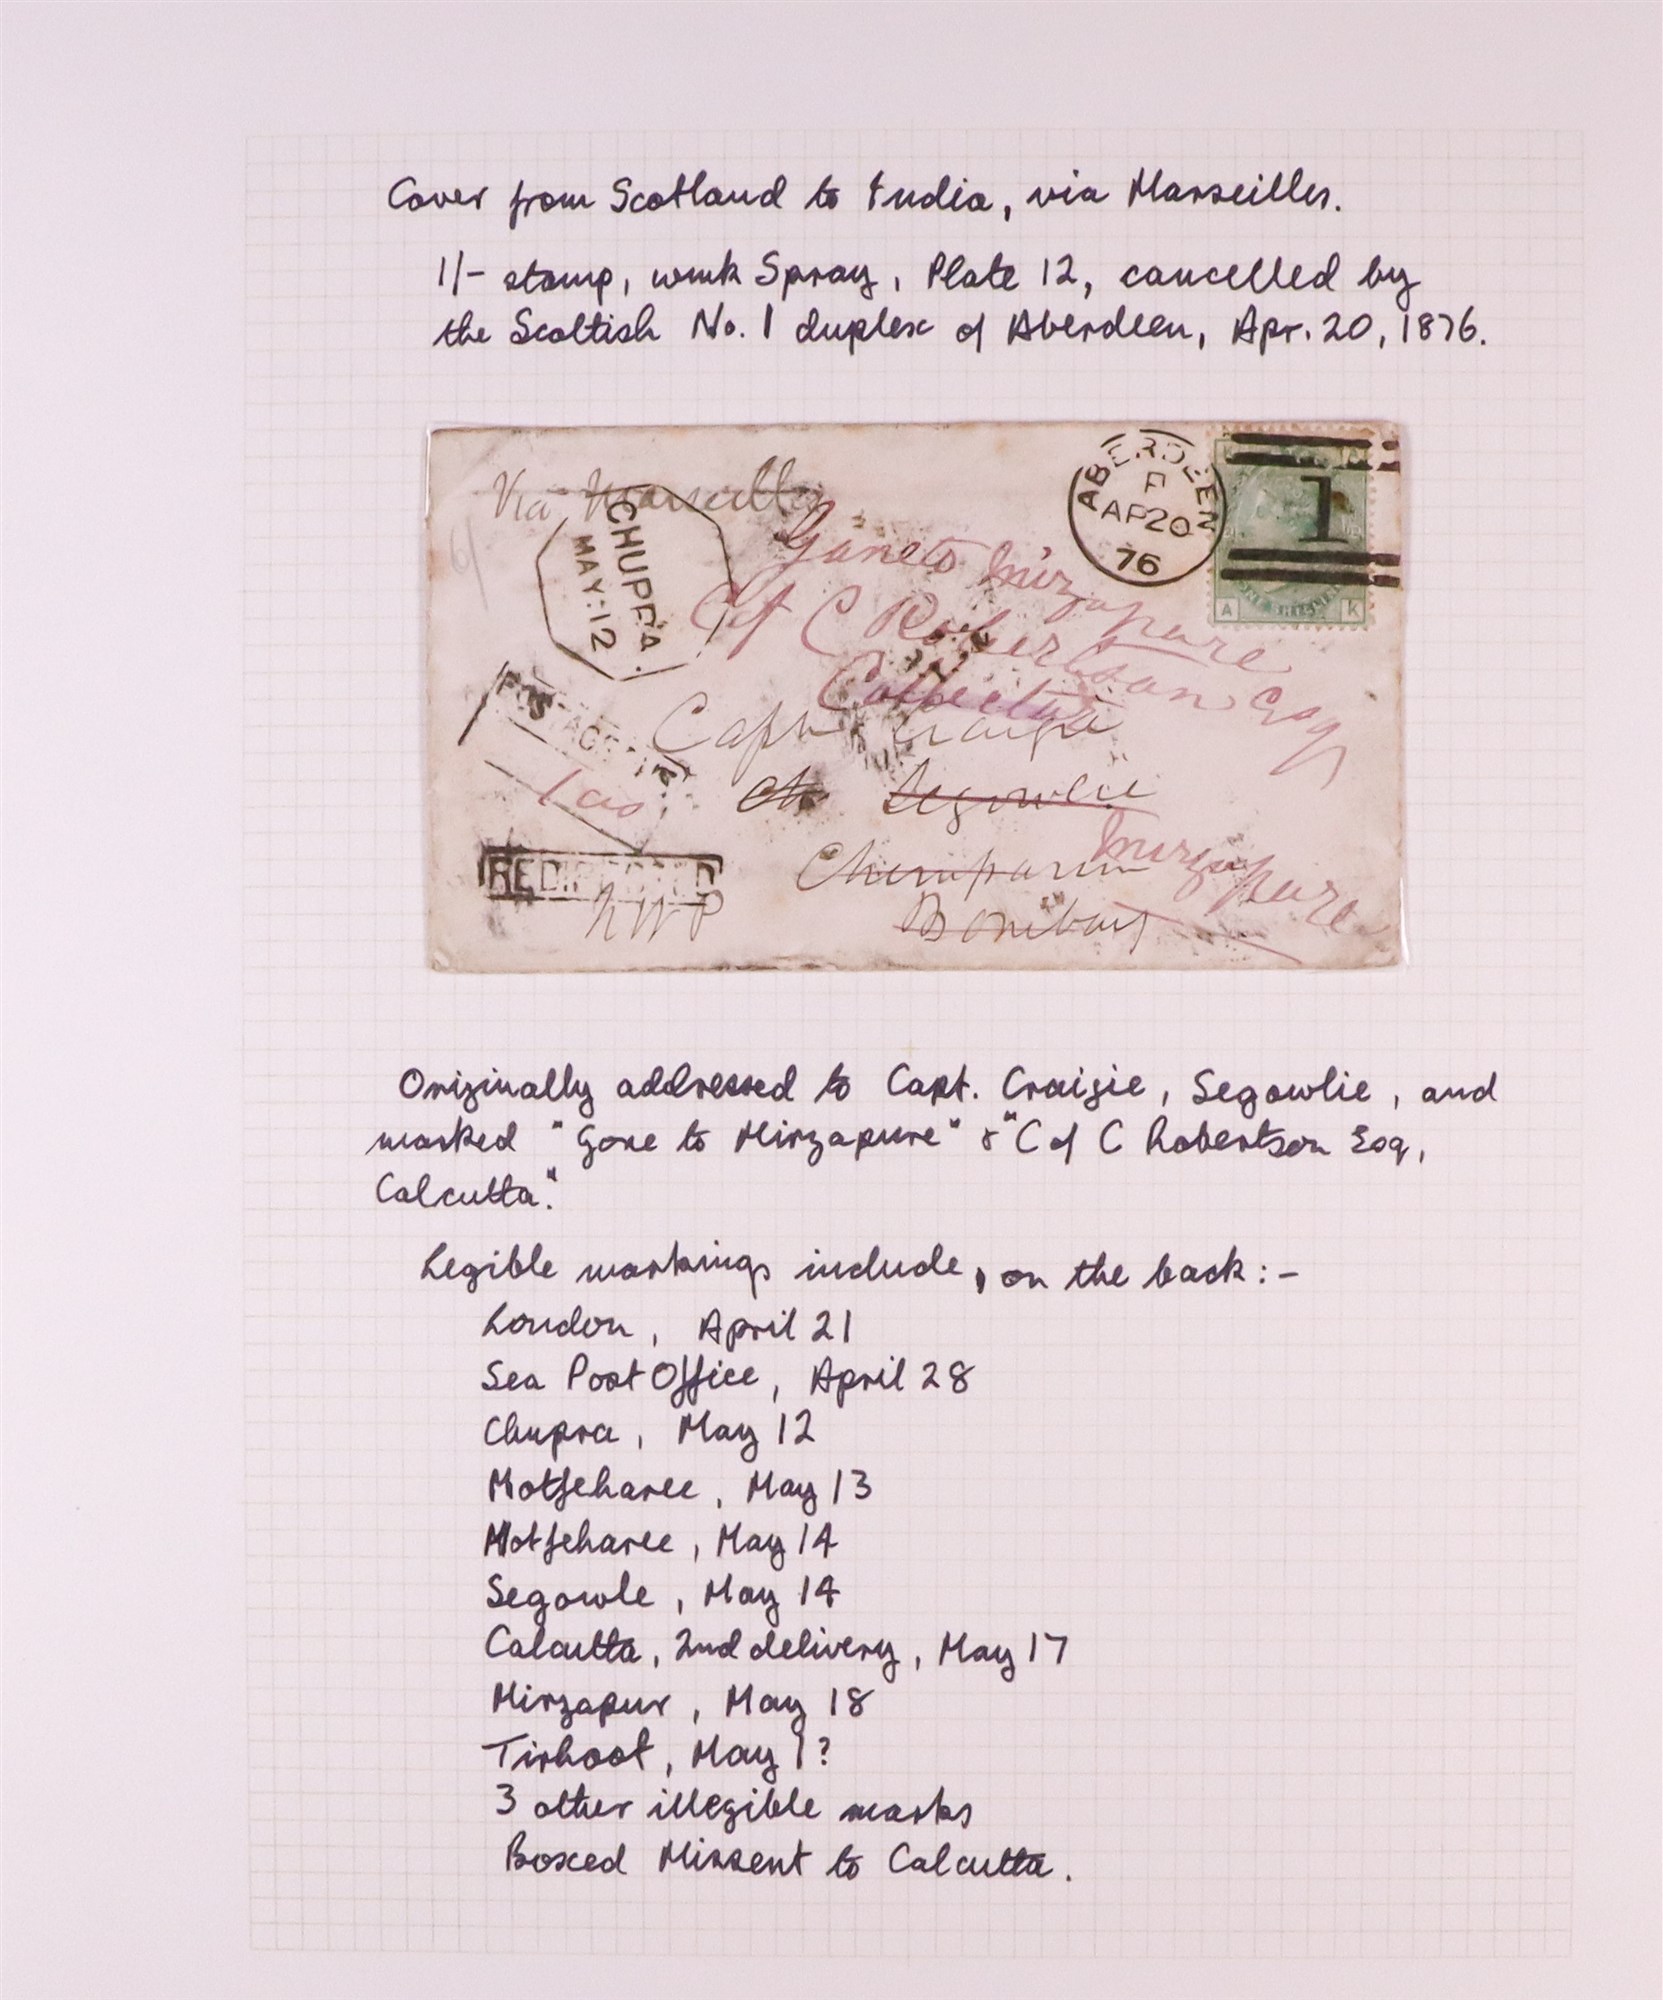 Cover from Scotland to India, via Marseilles.
1/- stamp, wmk Spray, Plate 12, cancelled by
the Scottish No. 1 duplex of Aberdeen, Apr. 20, 1876.
Via Marseilles
CHUPRA
MAY:12
ABERDEEN
AP20
76
1
A K
Gone to Mirzapure
C of C Robertson Esq
Capt Craigie
Segowlie
Chumparun
Mirzapure
Bombay
REDIRECTED
NWP
Originally addressed to Capt. Craigie, Segowlie, and
marked "Gone to Mirzapure" & "C of C Robertson Esq,
Calcutta".
Legible markings include, on the back:-
London, April 21
Sea Post Office, April 28
Chupra, May 12
Motfeharee, May 13
Motfeharee, May 14
Segowle, May 14
Calcutta, 2nd delivery, May 17
Mirzapur, May 18
Tirhoot, May 1?
3 other illegible marks
Boxed Missent to Calcutta.